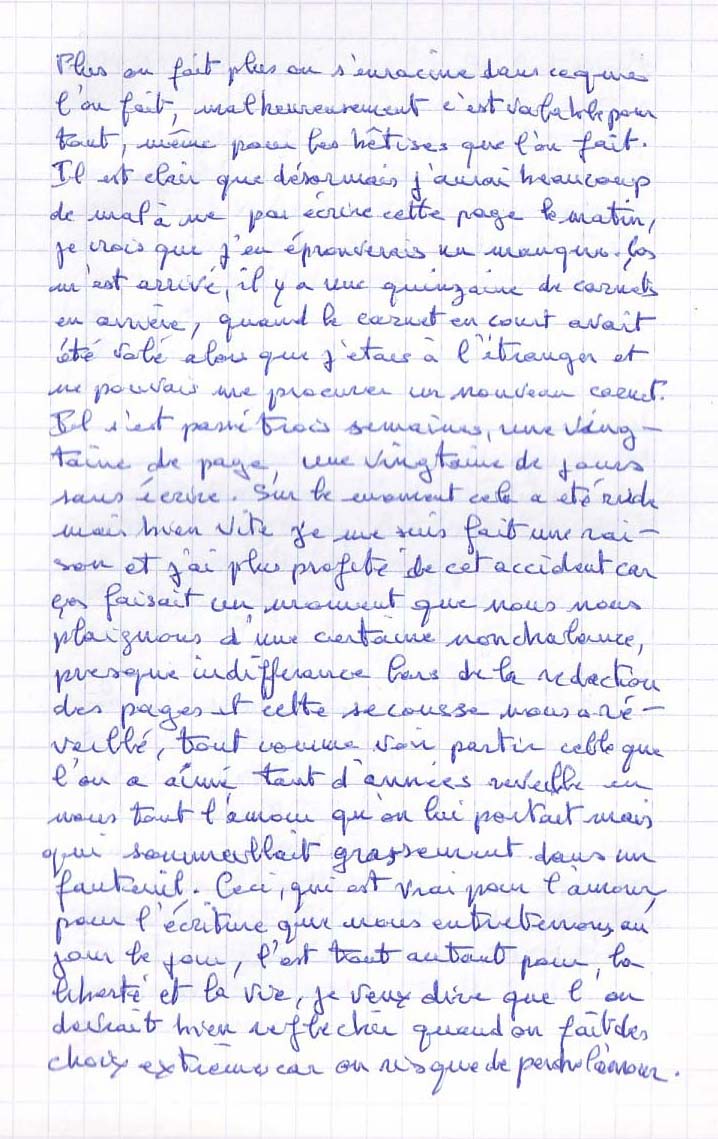 Plus on fait plus on s'enracine dans ce que
l'on fait, malheureusement c'est valable pour
tout, même pour les bêtises que l'on fait.
Il est clair que désormais j'aurai beaucoup
de mal à ne pas écrire cette page le matin,
je crois que j'en éprouverais un manque. Ças
m'est arrivé, il y a une quinzaine de carnets
en arrière, quand le carnet en court avait
été volé alors que j'étais à l'étranger et
ne pouvais me procurer un nouveau carnet.
Il s'est passé trois semaines, une ving-
taine de page, une vingtaine de jours
sans écrire. Sur le moment cela a été rude
mais bien vite je me suis fait une rai-
son et j'ai plus profité de cet accident car
ças faisait un moment que nous nous
plaignons d'une certaine nonchalance,
presque indifférance lors de la rédaction
des pages et cette secousse nous a ré-
veillé, tout comme voir partir celle que
l'on a aimé tant d'années reveille en
nous tout l'amour qu'on lui portait mais
qui sommeillait grassement dans un
fauteuil. Ceci, qui est vrai pour l'amour,
pour l'écriture que nous entretenons au
jour le jour, l'est tout autant pour, la
liberté et la vie, je veux dire que l'on
devrait bien reflechir quand on fait des
choix extrêmes car on risque de perdre l'amour.